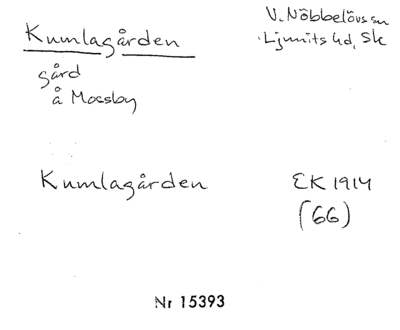 Kumlagården
V. Nöbbelövs sn
Ljunits hd, Sk
gård
å Mossby
Kumlagården
EK 1914
(66)
Nr 15393